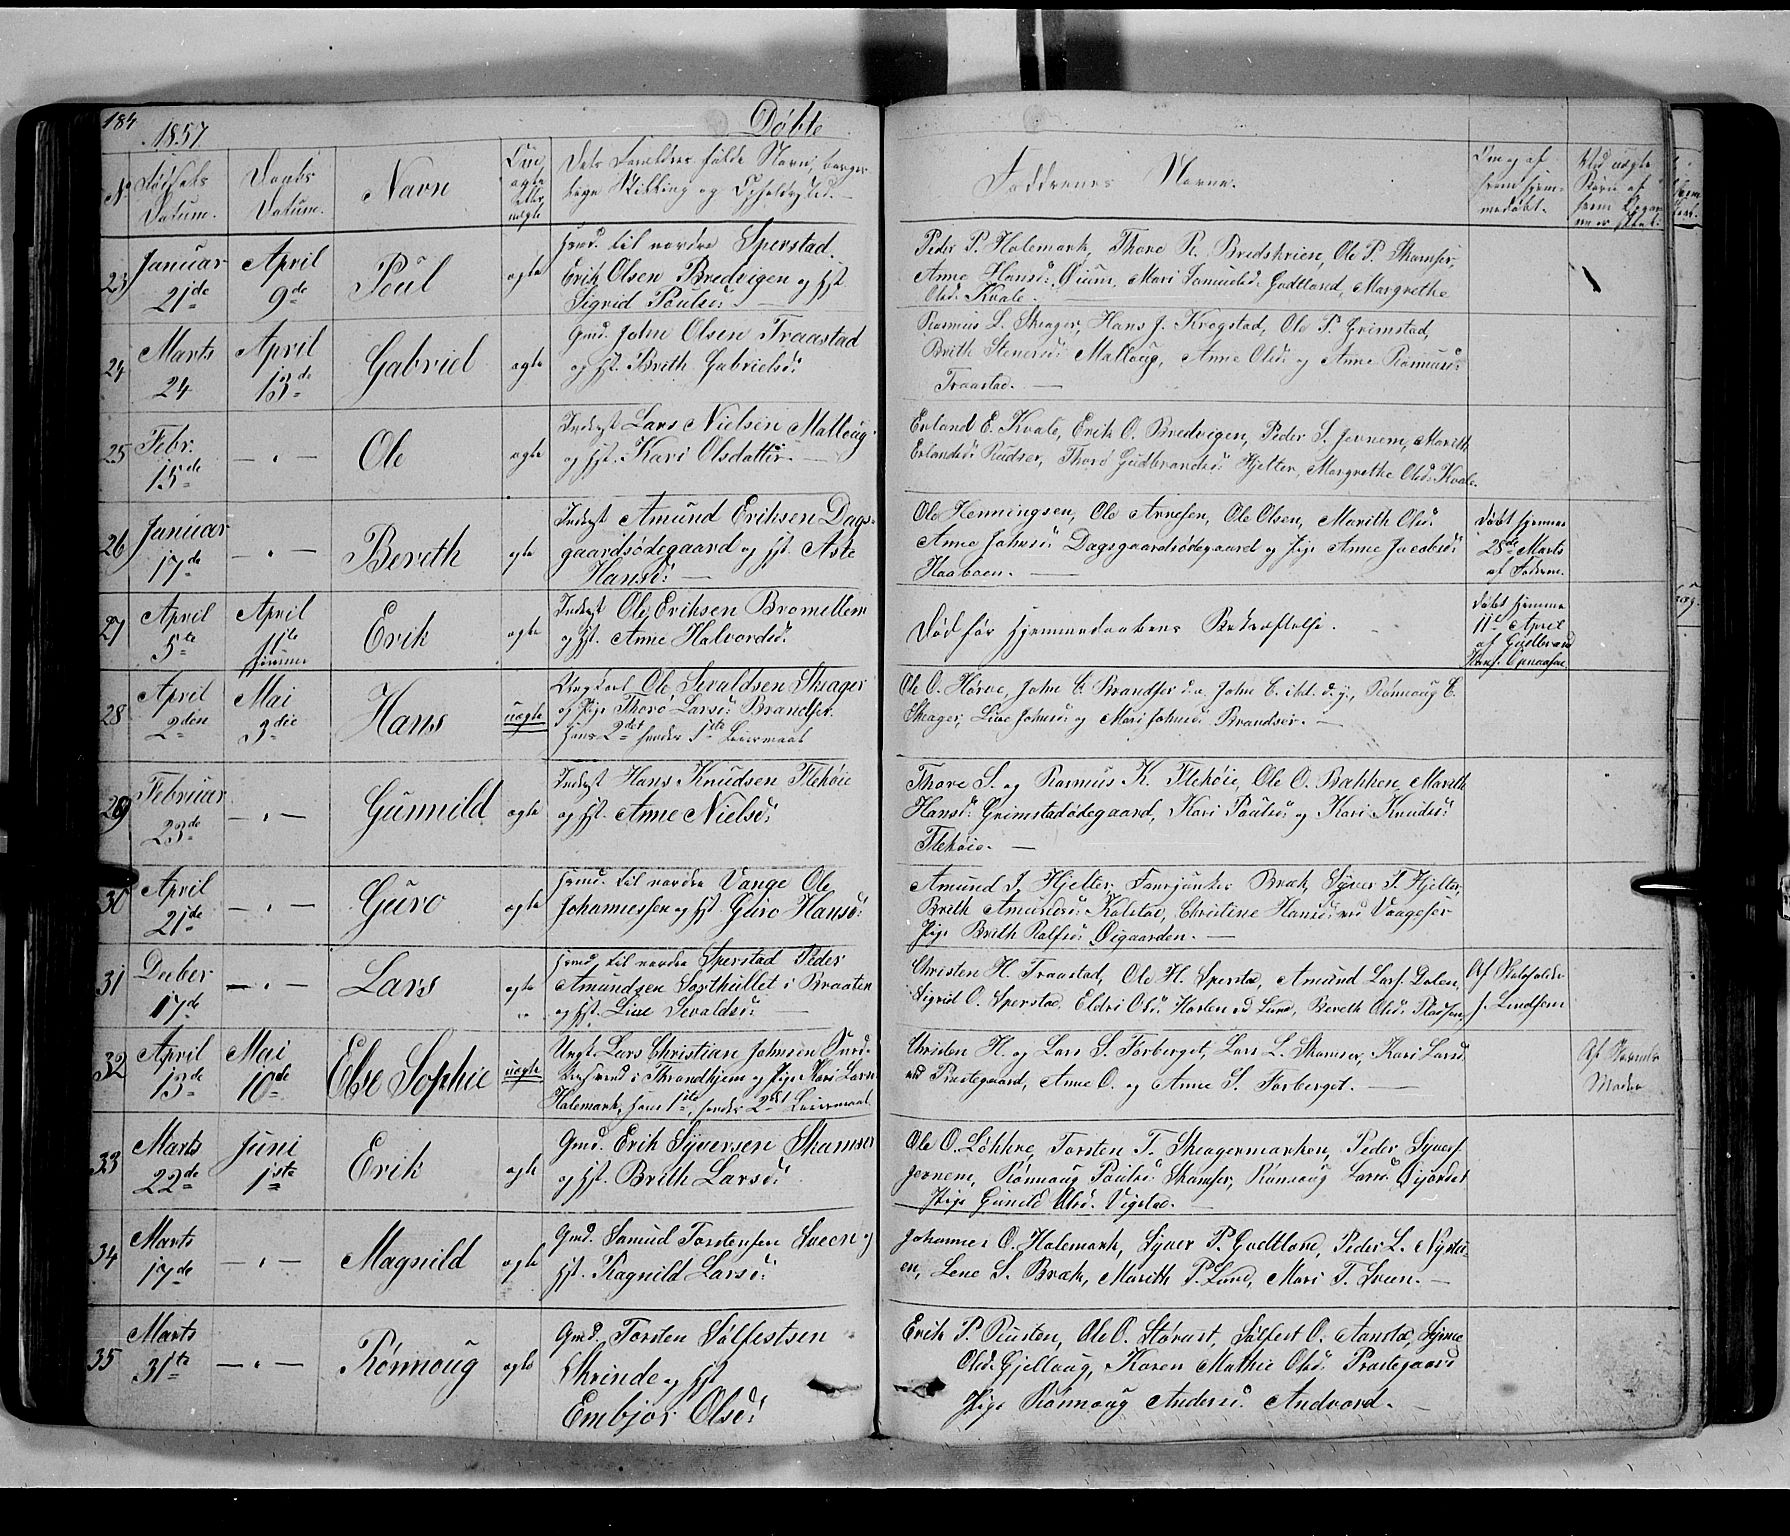 184
1857
Døbte
No
Fødsels Datum.
Daabs Datum.
Navn
Om ægte eller uægte
Det Forældres fulde Navn, borger-
lige Stilling og Opholdssted.
Faddrenes Navne.
Om og af hvem hjem- medøbt.
23
Januar
21de
April
9de
Poul
ægte
til nordre Sperstad.
Erik Olsen Bredvigen og
Sigrid Poulsd:
Peder P. Holemark, Thore R. Bredskrien, Ole P. Skamser,
Anne Hansd: Øium, Mari Samuelsd: Godtland, Margrethe
Olsd. Kvale.
24
Marts
24
April
13de
Gabriel
ægte
Gmd. John Olsen Traastad
og Hst. Brith Gabrielsd:
Rasmus L. Skeager, Hans J. Krogstad, Ole P. Grimstad,
Brith Stenersd: Matlaug, Anne Olsd: og Anne Rasmusd:
Traastad.
25
Febr.
15de
— " —
Ole
ægte
Inderst Lars Nielsen Matlaug
og Hst. Kari Olsdatter.
Erland E. Kvale, Erik O. Bredvigen, Peder S. Jevnem, Marith
Erlandsd: Rudser, Thoro Gudbrandsd: Hjelter, Margrethe Olsd: Kvale.
26
Januar
17de
— " —
Bereth
ægte
Inderst Amund Eriksen Dags-
gaardsødegaard og Hst. Aste
Hansd:
Ole Henningsen, Ole Arnesen, Ole Olsen, Marith Olsd.
Anne Johnsd: Dagsgaardsødegaard og Pige Anne Jacobsd:
Haaboen.
Døbt hjemme
28de Marts
af Faderen.
27
April
5te
April
11te
hjemme
Erik
ægte
Inderst Ole Eriksen Bromillem
og Hst. Anne Halvorsd:
Død før Hjemmedaabens Bekræftelse.
Døbt hjemme
11te April
af Gudbrand
28
April
2den
Mai
3die
Hans
uægte
Ungkarl Ole Sevaldsen Skeager
og Pige Thoro Larsd: Brandser.
hans 2det hendes 1ste Leiermaal
Ole O. Horve, John E. Brandser d.æ. John E. ibd. d.y., Rønnoug E.
Skeager, Live Johnsd: og Mari Johnsd: Brandser.
29
Februar
23de
— " —
Gunnild
ægte
Inderst Hans Knudsen Flekøie
og Hst. Anne Nielsd:
Thore S. og Rasmus K. Flekøie, Ole O. Bakken, Marith
Hansd: Grimstadødegaard, Kari Poulsd: og Kari Knudsd:
Flekøie.
30
April
21de
— " —
Guro
ægte
til nordre Vange Ole
Johannessen og Hst. Guro Hansd:
Amund J. Hjelter, Bræk, Syver T. Hjelter,
Brith Amundsd: Kolstad, Christine Hansd:
Pige Brith Ralfsd: Øigaarden.
31
Decber
17de
— " —
Lars
ægte
til nordre Sperstad Peder
Amundsen Sorthullet i Braaten
og Hst. Live Sevaldsd:
Christen H. Traastad, Ole H. Sperstad, Amund Lars. Dalen,
Sigrid O. Sperstad, Eldri Olsd: Haslen ved Lund, Bereth Olsd: Pladsen.
Af Skoleholder
J. Lindsem
32
April
13de
Mai
10de
Else Sophie
uægte
Ungk. Lars Christian Johnsen
i Throndhjem og Pige Kari Larsd:
Holemark, hans 1ste, hendes 2det Leiermaal.
Christen H. og Lars S. Forberget, Lars L. Skamser, Kari Larsd:
ved Præstegaard, Anne O. og Anne S. Forberget.
Af Barnets
Moder
33
Marts
22de
Juni
1ste
Erik
ægte
Gmd. Erik Syversen Skamser
og Hst. Brith Larsd:
Ole O. Løkkne, Torsten T. Skeagermarken, Peder Syvers.
Jevnem, Rønnoug Poulsd: Skamser, Rønnoug Larsd: Øijordet
Pige Gunild Olsd. Vigstad.
34
Marts
17de
— " —
Magnild
ægte
Gmd. Samuel Torstensen Sveen og
Hst. Ragnild Larsd:
Johannes O. Holemark, Syver P. Godtland, Peder L. Nystu-
en, Lene S. Bræk, Marith P. Lund, Mari T. Sveen.
35
Marts
31te
— " —
Rønnoug
ægte
Gmd. Torsten Sølfestsen
Skrinde og Hst
Embjør Olsd:
Erik P. Rusten, Ole O. Størust, Sølfest O. Aanstad,
Olsd. Gjellaug, Karen Mathie Olsd: Præstegaard
Pige Rønnoug Andersd: Andvord.